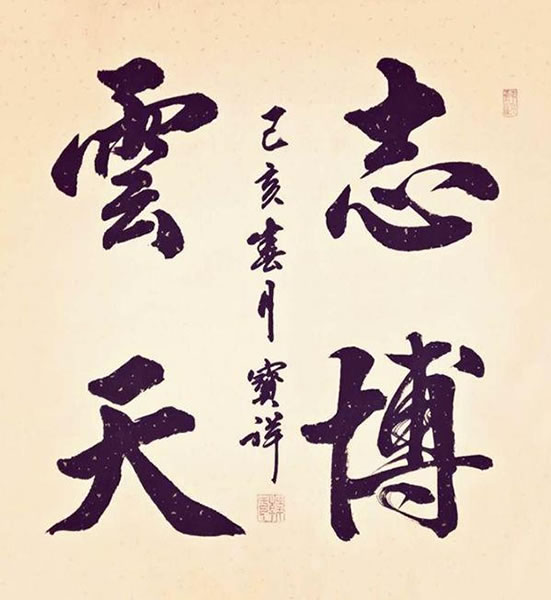 志博
雲天
己亥春月寶祥